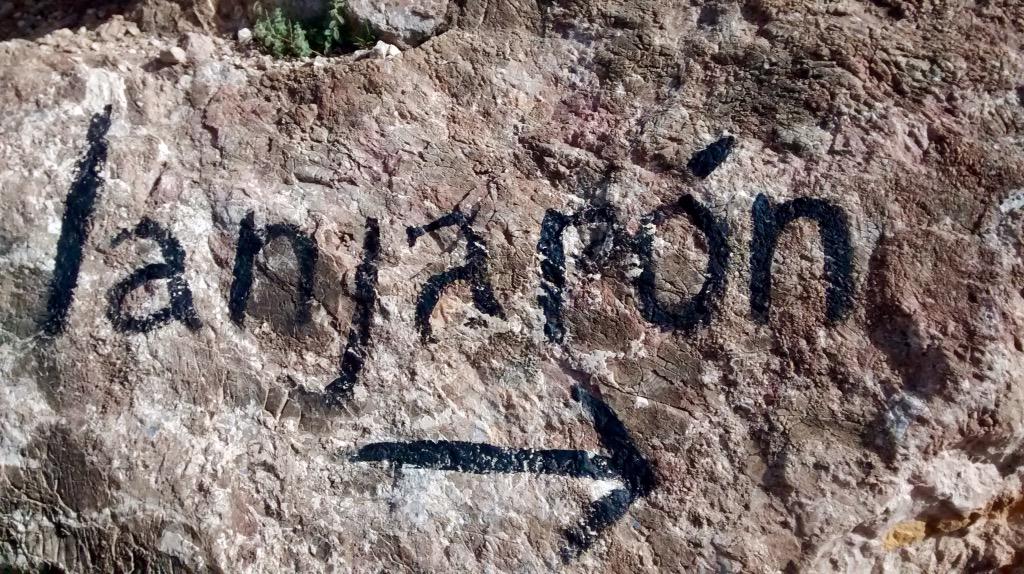 lanjarón